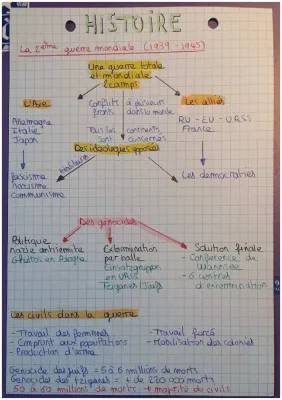 HISTOIRE
La 2ème guerre mondiale (1939 - 1945)
Une guerre totale
et mondiale
2 camps
L'Axe
Allemagne
Italie
Japon
Conflits à plusieurs
fronts dans le monde
Tous les continents
sont concernés
Les alliés
RU - EU - URSS
France
Des idéologies opposées
fascisme
nazisme
communisme
Les démocraties
Des génocides
Politique
nazie antisémite
Ghettos en
Extermination
par balle
Einsatzgruppen
en URSS
Tziganes / Juifs
Solution finale
- Conférence de
Wannsee
- 6 centres
d'extermination
Les civils dans la guerre
- Travail des femmes
- aux populations
- Production d'arme
- Travail forcé
- Mobilisation des colonies
Génocide des juifs = 5 à 6 millions de morts
Génocide des tziganes = + de 220 000 morts
50 à 60 millions de morts + majorité de civils